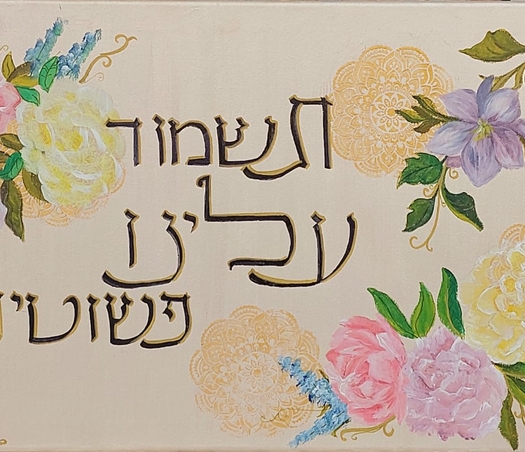 תשמור
עלינו
פשוטי